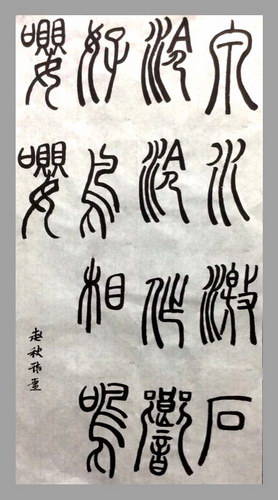 泉水激石
泠泠作響
好鳥相鳴
嚶嚶
赵秋